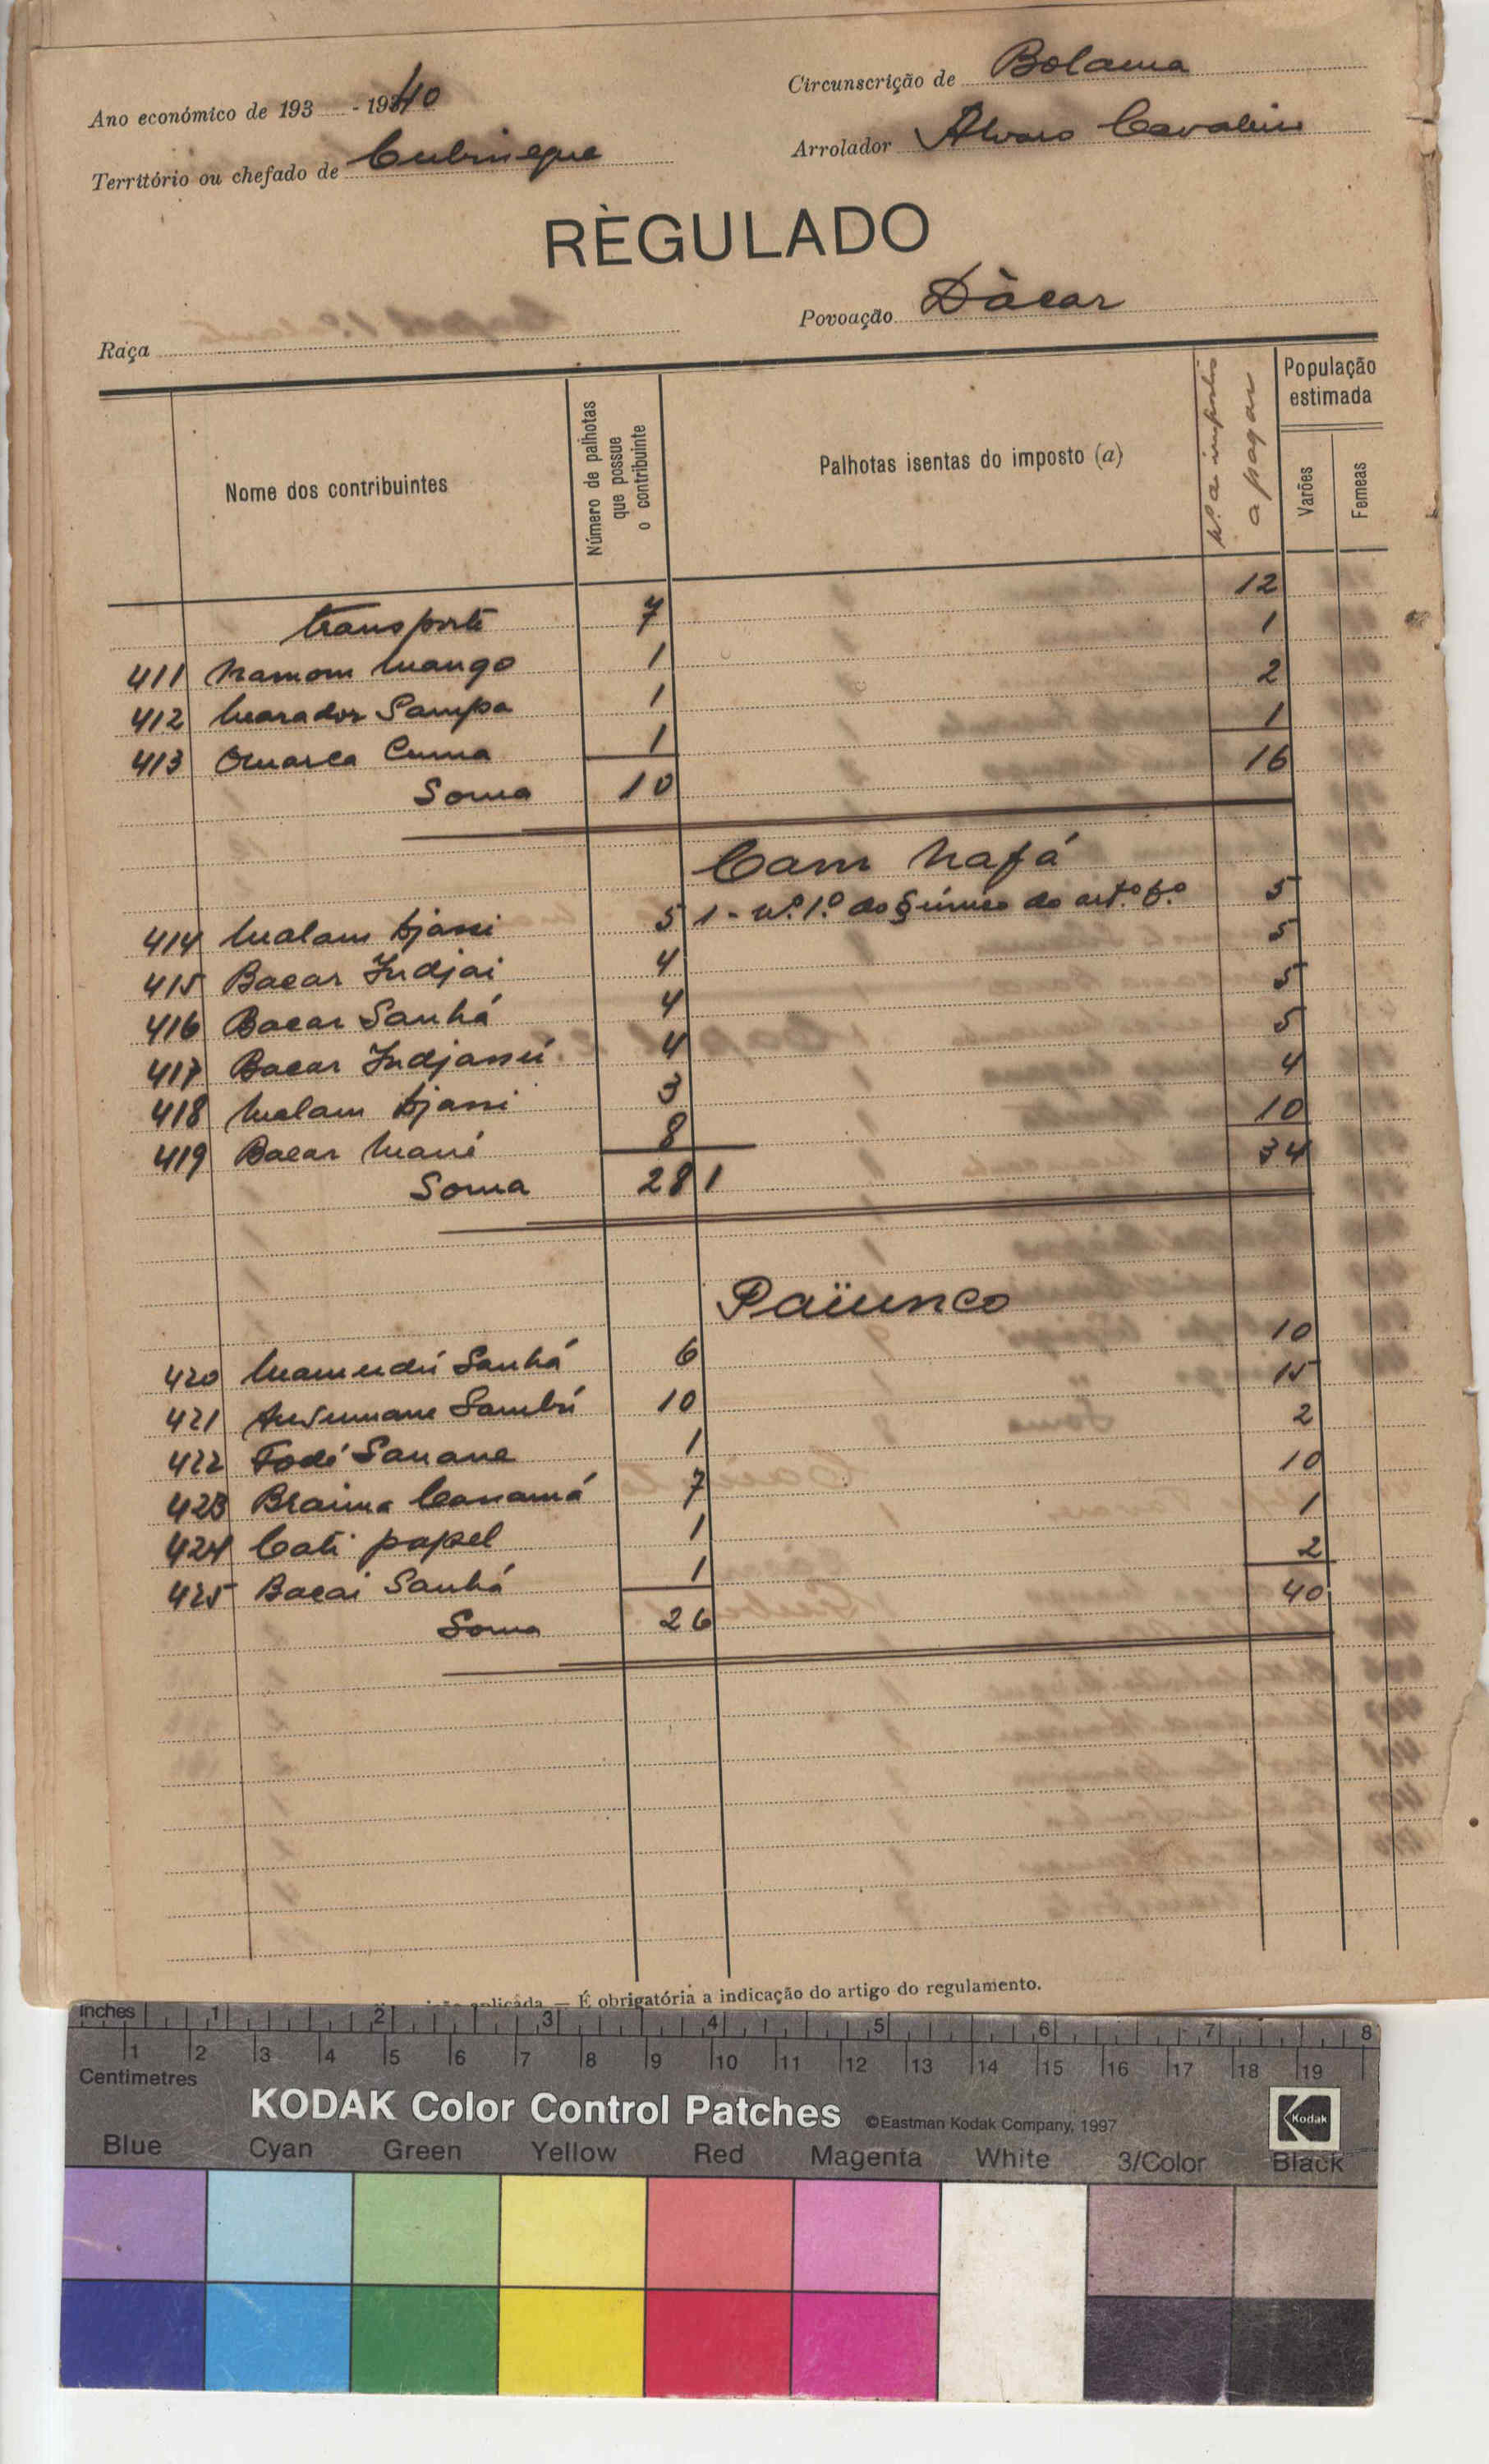 Ano económico de 193 - 1940
Circunscrição de Bolama
Território ou chefado de Cubisseque
Arrolador Alvaro Cavaleiro
RÈGULADO
Raça
Povoação Dàcar
Nome dos contribuintes
Número de palhotas que possue o contribuinte
Palhotas isentas do imposto (a)
a pagar
População estimada
Varões
Femeas
Transporte 7 12
411 Namom Mango 1 1
412 Marador Sampa 1 2
413 Cuma 1 1
Soma 10 16
Cam Nafá
414 Malam Djassi 5 1 - Nº 1.º do § único do artº 6.º 5
415 Bacar Indjai 4 5
416 Bacar Sanhá 4 5
417 Bacar Indjassú 4 5
418 Malam Djassi 3 4
419 Bacar Mané 8 10
Soma 28 1 34
Païunco
420 Mamudú Sanhá 6 10
421 Ansumane Sambú 10 15
422 Fodé Sanane 1 2
423 Braima Cassamá 7 10
424 Cati papel 1 1
425 Bacai Sanhá 1 2
Soma 26 40
aplicada — É obrigatória a indicação do artigo do regulamento.
inches 1 2 3 4 5 6 7 8
1 2 3 4 5 6 7 8 9 10 11 12 13 14 15 16 17 18 19
Centimetres
KODAK Color Control Patches ©Eastman Kodak Company, 1997 Kodak
Blue Cyan Green Yellow Red Magenta White 3/Color Black